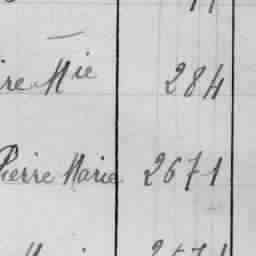 re Mie 284
Pierre Marie 2671